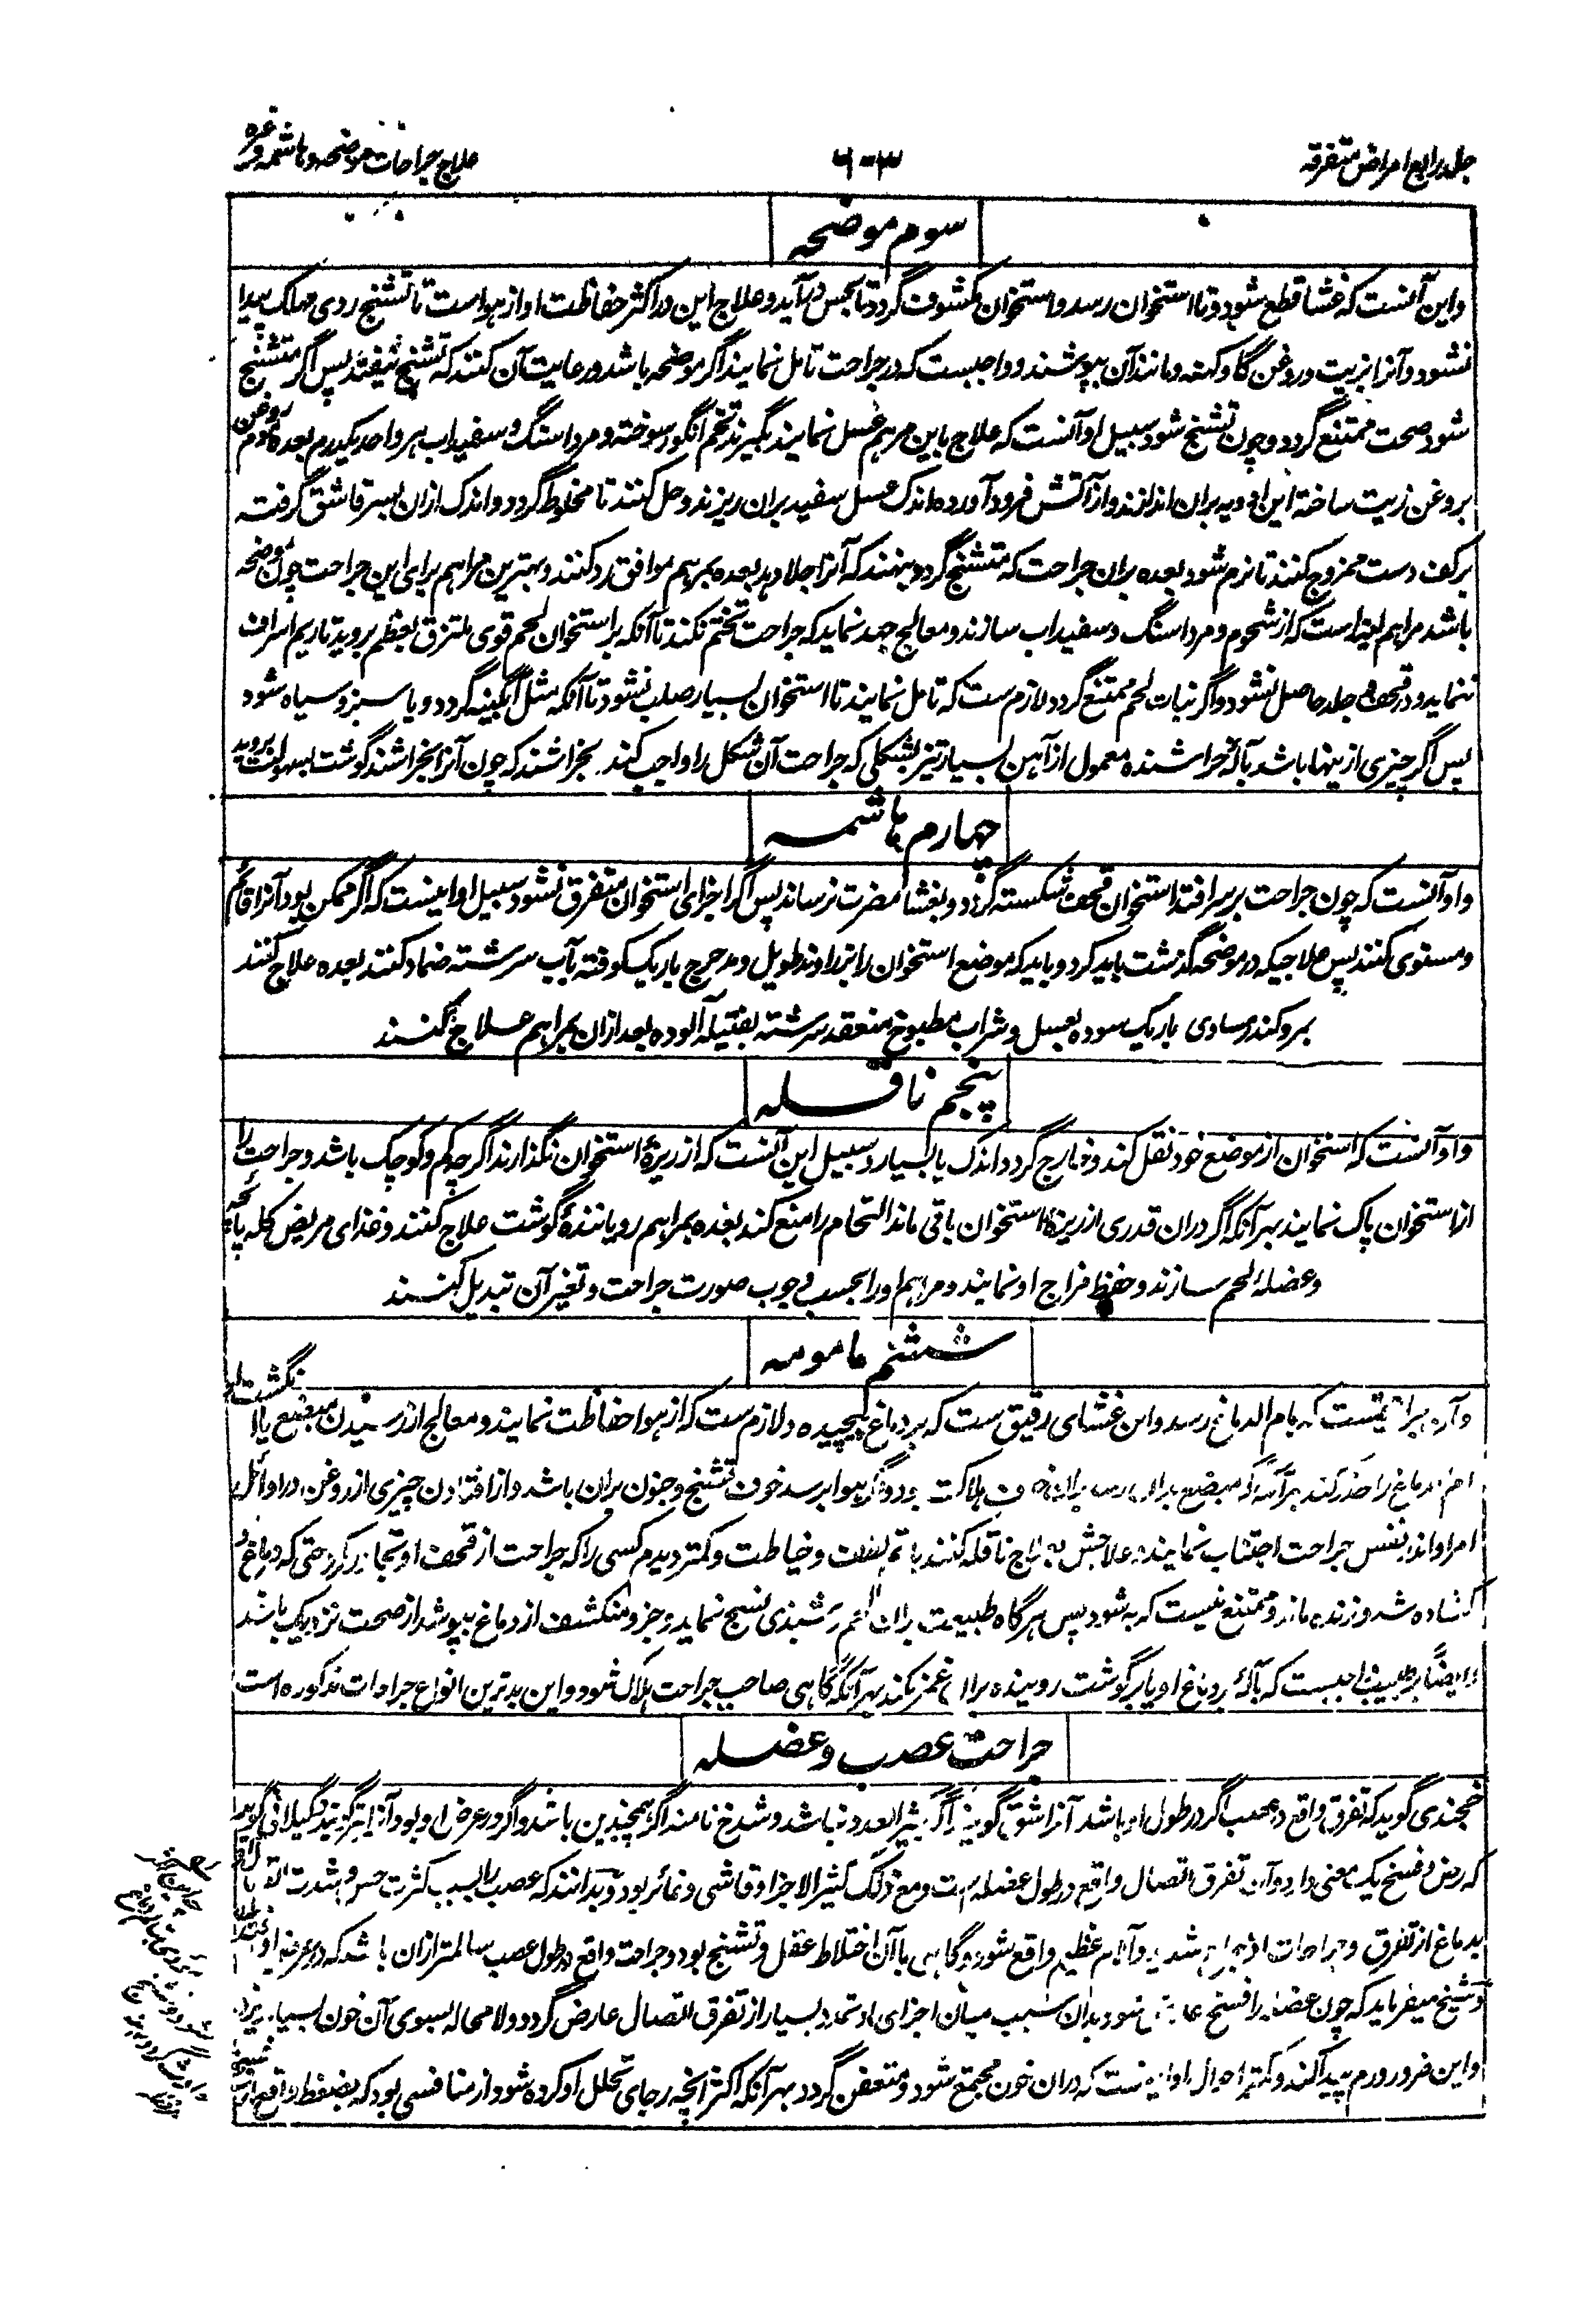 جلد رابع امراض متفرقه
۶۰۳
علاج جراحات موضحه و هاشمه وغیره
سوم موضحه
واین آنست که غشا قطع شود و تا استخوان رسد و استخوان مکشوف گردد تا بحس در آید و علاج این در اکثر حفاظت او از هواست تا تشنج ردی مهلک پیدا
نشود و آنرا بزیت و روغن گاو کهنه و مانند آن بپوشند و واجبست که در جراحت تامل نمایند اگر موضحه باشد و رعایت آن کنند که تشنج نیفتد پس اگر متشنج
شود صحت ممتنع گردد و چون تشنج شود سبیل او آنست که علاج باین مرهم غسل نمایند بگیرند تخم انگور سوخته و مرداسنگ و سفیداب هر واحد یکدرم بعده موم روغن
بروغن زیت ساخته این ادویه بران اندازند و از آتش فرود آورده اندک عسل سفید بران ریزند و حل کنند تا مخلوط گردد و اندک ازان بسر قاشق گرفته
بر کف دست ممزوج کنند تا نرم شود بعده بران جراحت که متشنج گردد بنهند که آنرا جلا دهد بعده بمرهم موافق رد کنند و بهترین مراهم برای این جراحت چون موضحه
باشد مراهم لینه است که از شحوم و مرداسنگ و سفیداب سازند و معالج جهد نماید که جراحت تختم نکند تا آنکه بر استخوان لحم قوی ملتزق بعظم بروید تا ریم اسراف
ننماید و در قحف جلد حاصل نشود و اگر نبات لحم ممتنع گردد لازم ست که تامل نمایند تا استخوان بسیار صلب نشود تا آنکه مثل آبگینه گردد و یا سبز و سیاه شود
پس اگر چیزی ازینها باشد بآله خراشنده معمول از آهن بسیار تیز بشکلی که جراحت آن شکل را واجب کند بخراشند که چون آنرا بخراشند گوشت بسهولت بروید
چهارم هاشمه
و او آنست که چون جراحت بر سر افتد استخوان قحف شکسته گردد و بغشا مضرت نرساند پس اگر اجزای استخوان متفرق نشود سبیل او اینست که اگر ممکن بود آنرا قائم
و مستوی کنند پس علاجیکه در موضحه گذشت باید کرد و باید که موضع استخوان را بزراوند طویل و مدحرج باریک کوفته بآب سرشته ضماد کنند بعده علاج کنند
بمر و کندر مساوی باریک سوده بعسل و شراب مطبوخ منعقد سرشته بفتیله آلوده بعد ازان بمراهم علاج کنند
پنجم ناقله
و او آنست که استخوان از موضع خود نقل کند و خارج گردد اندک یا بسیار و سبیل این آنست که از ریزۀ استخوان نگذارند اگرچه کم و کوچک باشد و جراحت را
از استخوان پاک نمایند بهر آنکه اگر دران قدری از ریزۀ استخوان باقی ماند التحام را منع کند بعده بمراهم رویانندۀ گوشت علاج کنند و غذای مریض کله پاچه
و عضلۀ لحم سازند و حفظ مزاج او نمایند و مراهم او را بحسب وجوب صورت جراحت و تغیر آن تبدیل کنند
ششم مامومه
و آن جراحتیست که بام الدماغ رسد و این غشای رقیق ست که بر دماغ پیچیده و لازم ست که از هوا حفاظت نمایند و معالج از رسیدن مبضع یا انگشت
ام دماغ را حذر کند بهر آنکه اگر مبضع بران رسد بران خوف هلاکت بود و اگر هوا برسد خوف تشنج و جنون بران باشد و از افتادن چیزی از روغن در اوائل
امر او اندر نفس جراحت اجتناب نمایند و علاجش بعلاج ناقله کنند با تم لطف و خیاطت و کمتر دیدم کسی را که جراحت از قحف او تجاوز کرد حتی که دماغ او
کشاده شد و زنده ماند و ممتنع نیست که به شود پس هرگاه طبیعت بران لحم شبندی نسج نماید و جزو منکشف از دماغ بپوشد از صحت نزدیک باشد
و ایضاً بر طبیب واجبست که بآله بر دماغ او یا بر گوشت روینده بران غمز نکند بهر آنکه گاهی صاحب جراحت هلاک شود و این بدترین انواع جراحات مذکوره است
جراحت عصب و عضله
خجندی گوید که تفرق واقع در عصب اگر در طول او باشد آنرا شق گویند اگر کثیر العدد نباشد و شدخ نامند اگر همچنین باشد و اگر در عرض او بود آنرا بتر گویند و گیلانی گوید
که رض و فسخ یک معنی دارد و آن تفرق اتصال واقع در طول عضله است و مع ذلک کثیر الاجزا و فاشی و غائر بود و بدانند که عصب را بسبب کثرت حس و شدت اتصال
بدماغ از تفرق و جراحات اوجاع شدید و آلام عظیم واقع شود و گاهی باآن اختلاط عقل و تشنج بود و جراحت واقع در طول عصب سالمتر ازان باشد که در عرض او
و شیخ میفرماید که چون عضله را فسخ عارض شود بدان سبب میان اجزای او تمدد بسیار از تفرق اتصال عارض گردد و لا محاله بسوی آن خون بسیار ریزد
و این ضرور ورم پیدا کند و کمتر احوال او اینست که دران خون مجتمع شود و متعفن گردد بهر آنکه اکثر آنچه رجای تحلل او کرده شود از منافسی بود که بضغط واقع از